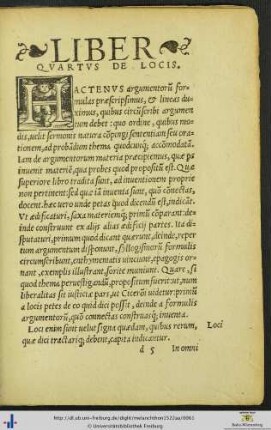 LIBER
QVARTVS DE LOCIS.
HACTENVS argumentorũ for
mulas præscripsimus, & lineas du
ximus, quibus circũscribi argumen
tum debet: quo ordine, quibus mo
dis, uelit sermonis natura cõpingi sententiam seu ora
tionem, ad probãdum thema quodcunq; accomodatã.
Iam de argumentorum materia præcipiemus, quæ ps
inuenit materiẽ, qua probes quod propositũ est. Quæ
superiore libro tradita sunt, ad inuentionem proprie
non pertinent: sed quæ iã inuenta sunt, quõ conectas,
docent. hæc uero unde petas quod dicendũ est, indicãt.
Vt ædificaturi, saxa materiemq; primũ cõparant: de-
inde construunt ex alijs alias ædificij partes. Ita di
sputaturi, primum quod dicant quærunt, deinde, reper
tum argumentum disponunt, syllogismorũ formulis
circumscribunt, enthymematis uinciunt, epagogis or
nant, exemplis illustrant, sorite muniunt. Quare, si
quod thema peruestigandũ propositum fuerit: ut, num
liberalitas sit iusticiæ pars, ut Ciceroni uidetur: primũ
a locis petes de eo quid dici possit, deinde a formulis
argumentorũ, quõ connectas construasq; inuenta.
Loci enim sunt uelut signa quædam, quibus rerum,
quæ dici tractariq; debent, capita indicantur.
Loci
d 5
In omni
http://dl.ub.uni-freiburg.de/diglit/melanchthon1522aa/0061
© Universitätsbibliothek Freiburg
Baden-Württemberg